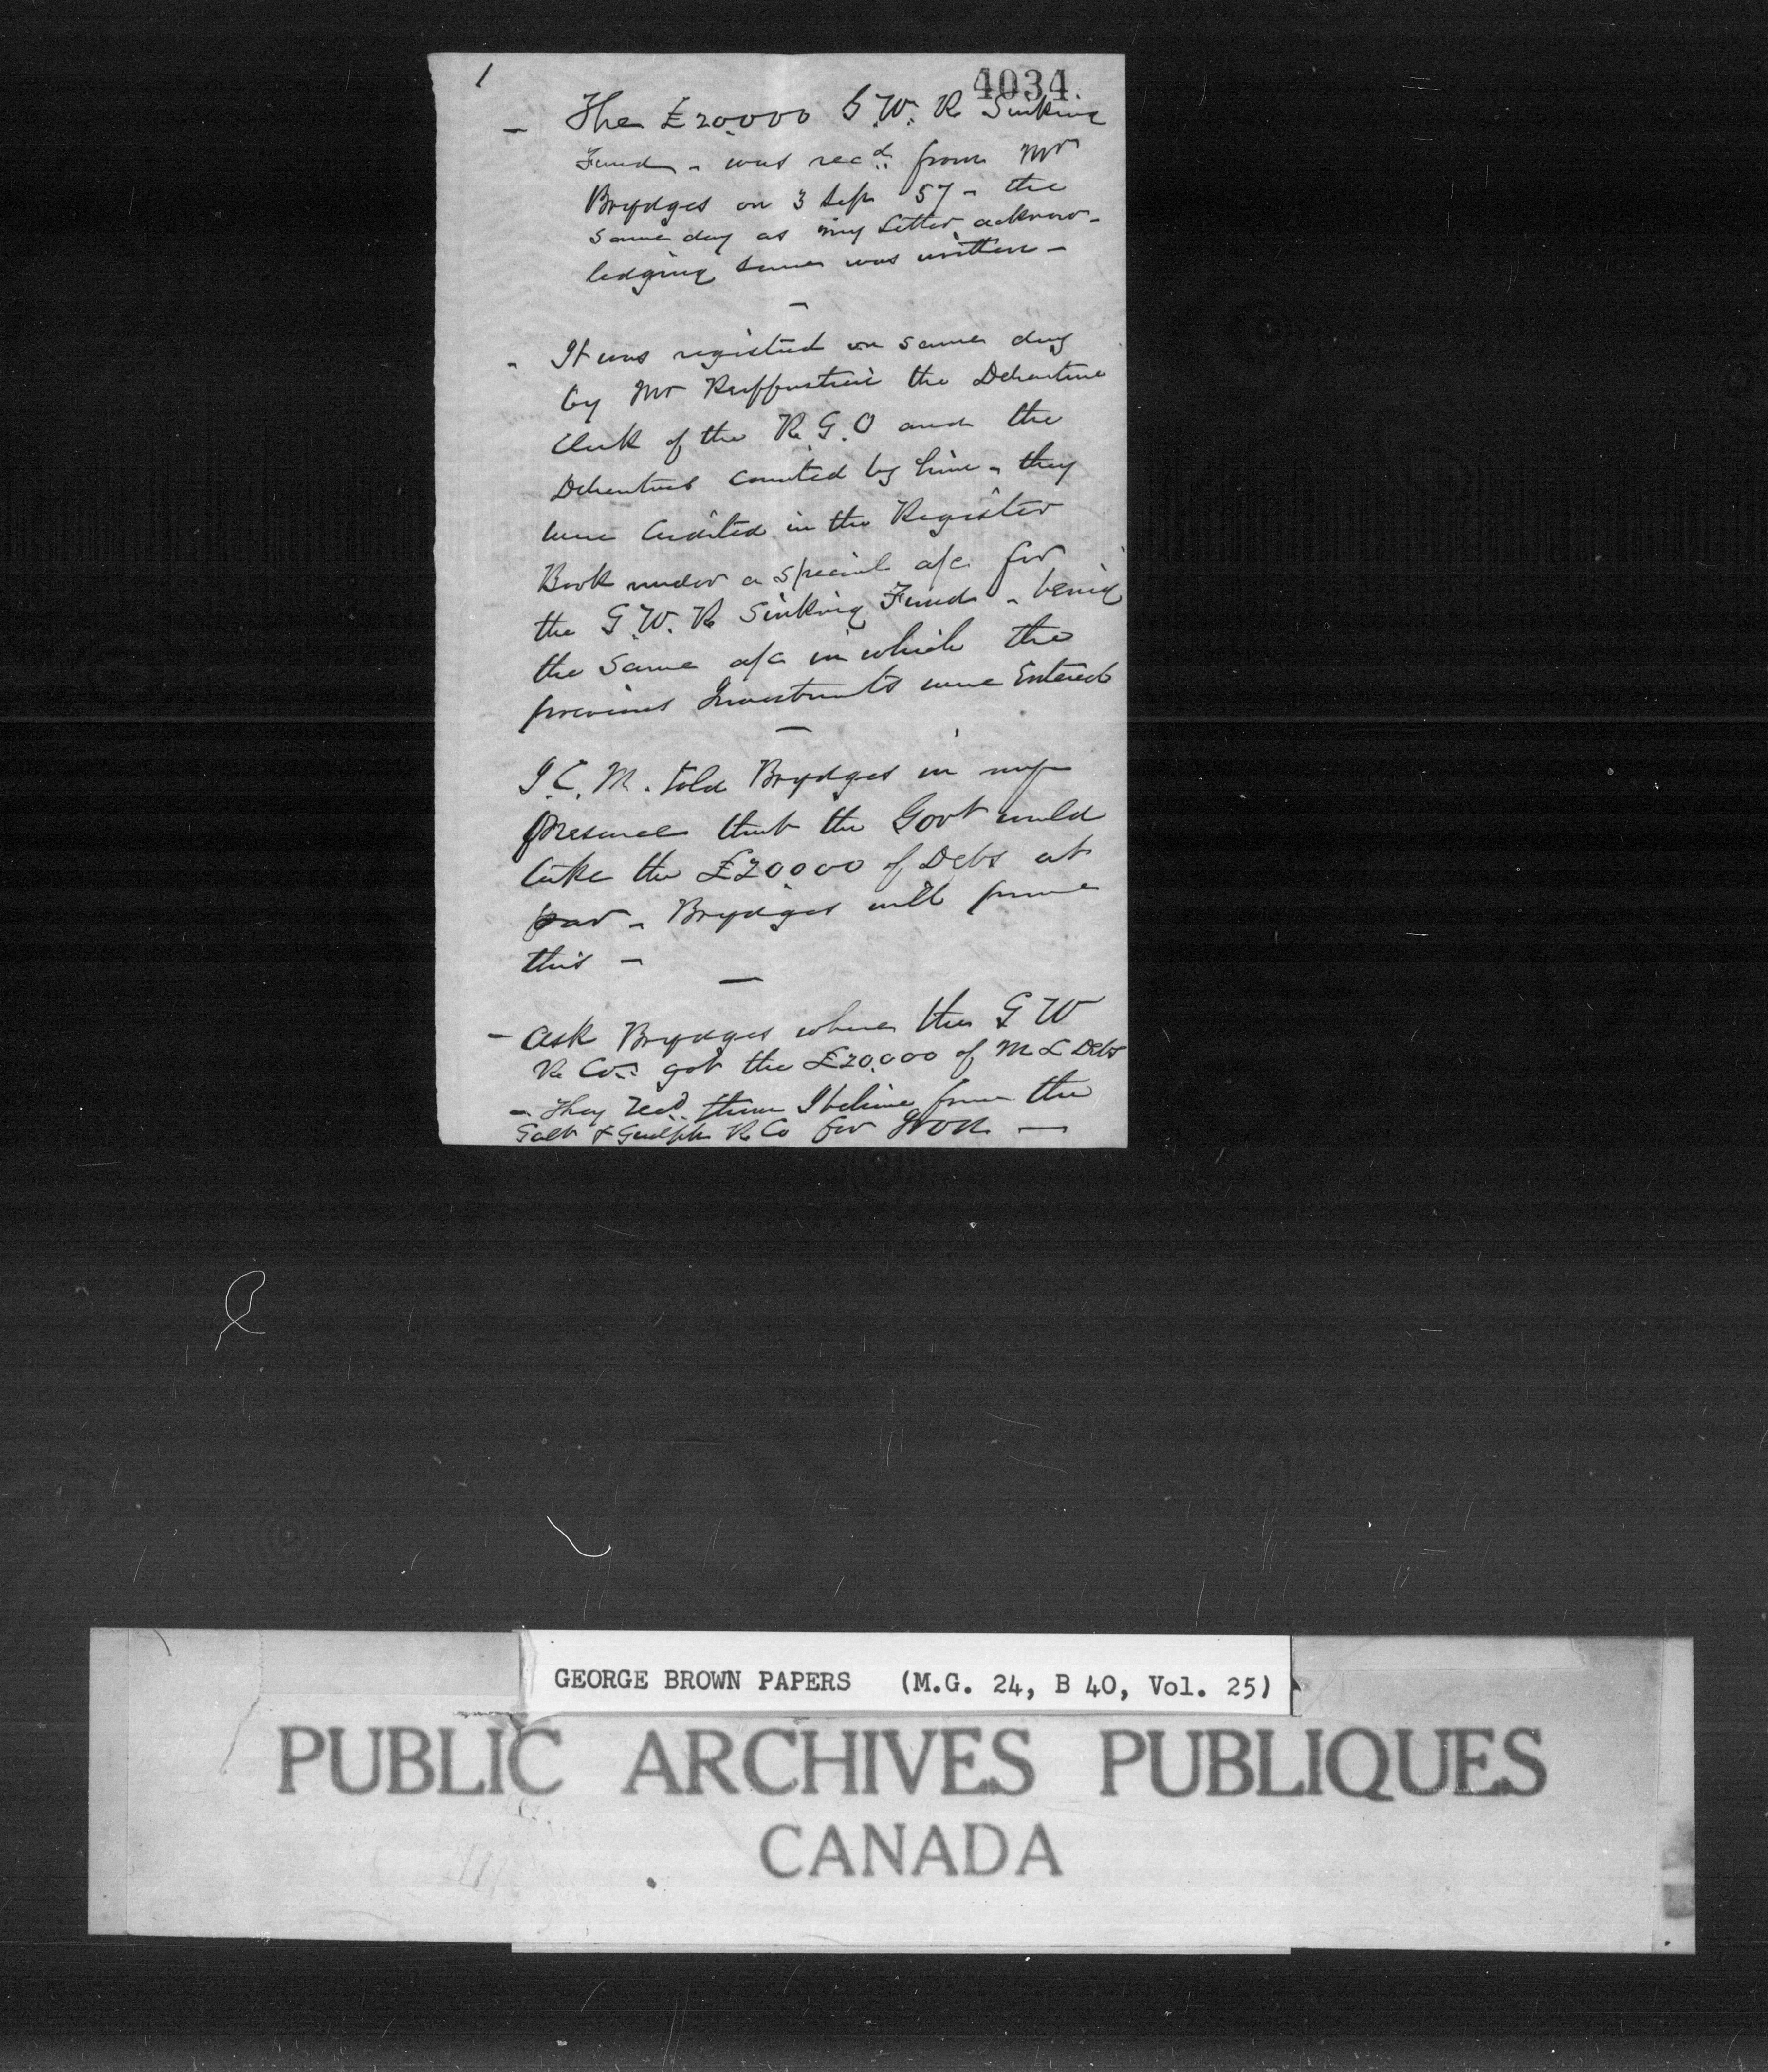 1
4034.
– The £20,000 G.W.R Sinking
Fund – was recd from Mr
Brydges on 3 Sep 57 – the
same day as my letter acknow-
ledging same was written –
– It was registered on same day
by Mr Reiffenstein the Debenture
Clerk of the R.G.O and the
Debentures counted by him – they
were credited in the Register
Book under a special a/c for
the G.W.R Sinking Fund – being
the same a/c in which the
previous Investments were Entered
J.C.M. told Brydges in my
presence that the Govt would
take the £20000 of Debs at
par – Brydges will prove
this –
– Ask Brydges where the G W
R Co. got the £20,000 of M L Debs
– They recd them I believe from the
Galt & Guelph R Co for Iron –
GEORGE BROWN PAPERS (M.G. 24, B 40, Vol. 25)
PUBLIC ARCHIVES PUBLIQUES
CANADA